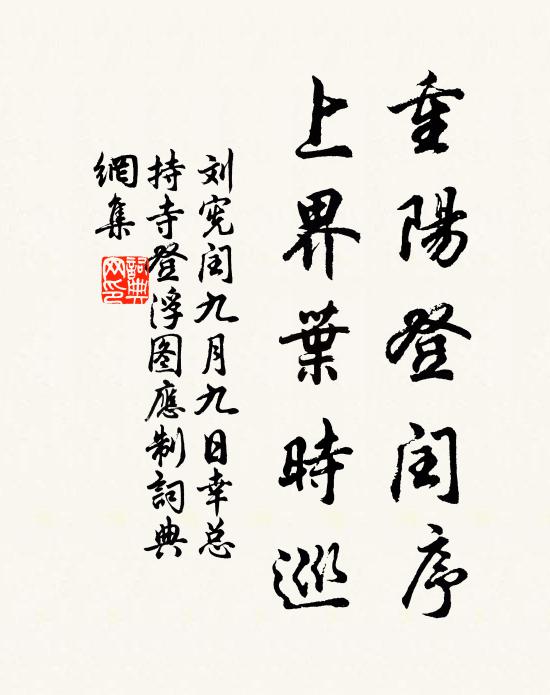 重陽登閏序
上界葉時巡
刘宪闰九月九日幸总
持寺登浮图應制詞典
網集
詞典網印